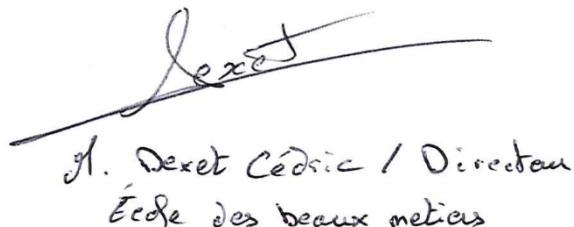 Dexet
M. Dexet Cédric / Directeur
École des beaux metiers